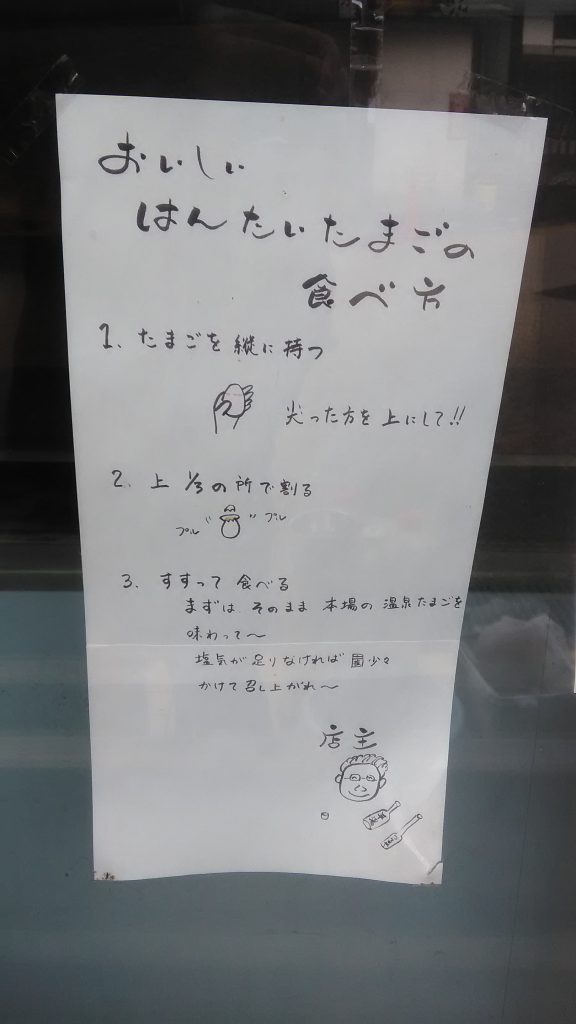 おいしい
はんたいたまごの
食べ方
1、たまごを縦に持つ
尖った方を上にして!!
2、上 1/3の所で割る
プル プル
3、すすって食べる
まずは、そのまま 本場の温泉たまごを
味わって〜
塩気が足りなければ 少々
かけて召し上がれ〜
店主